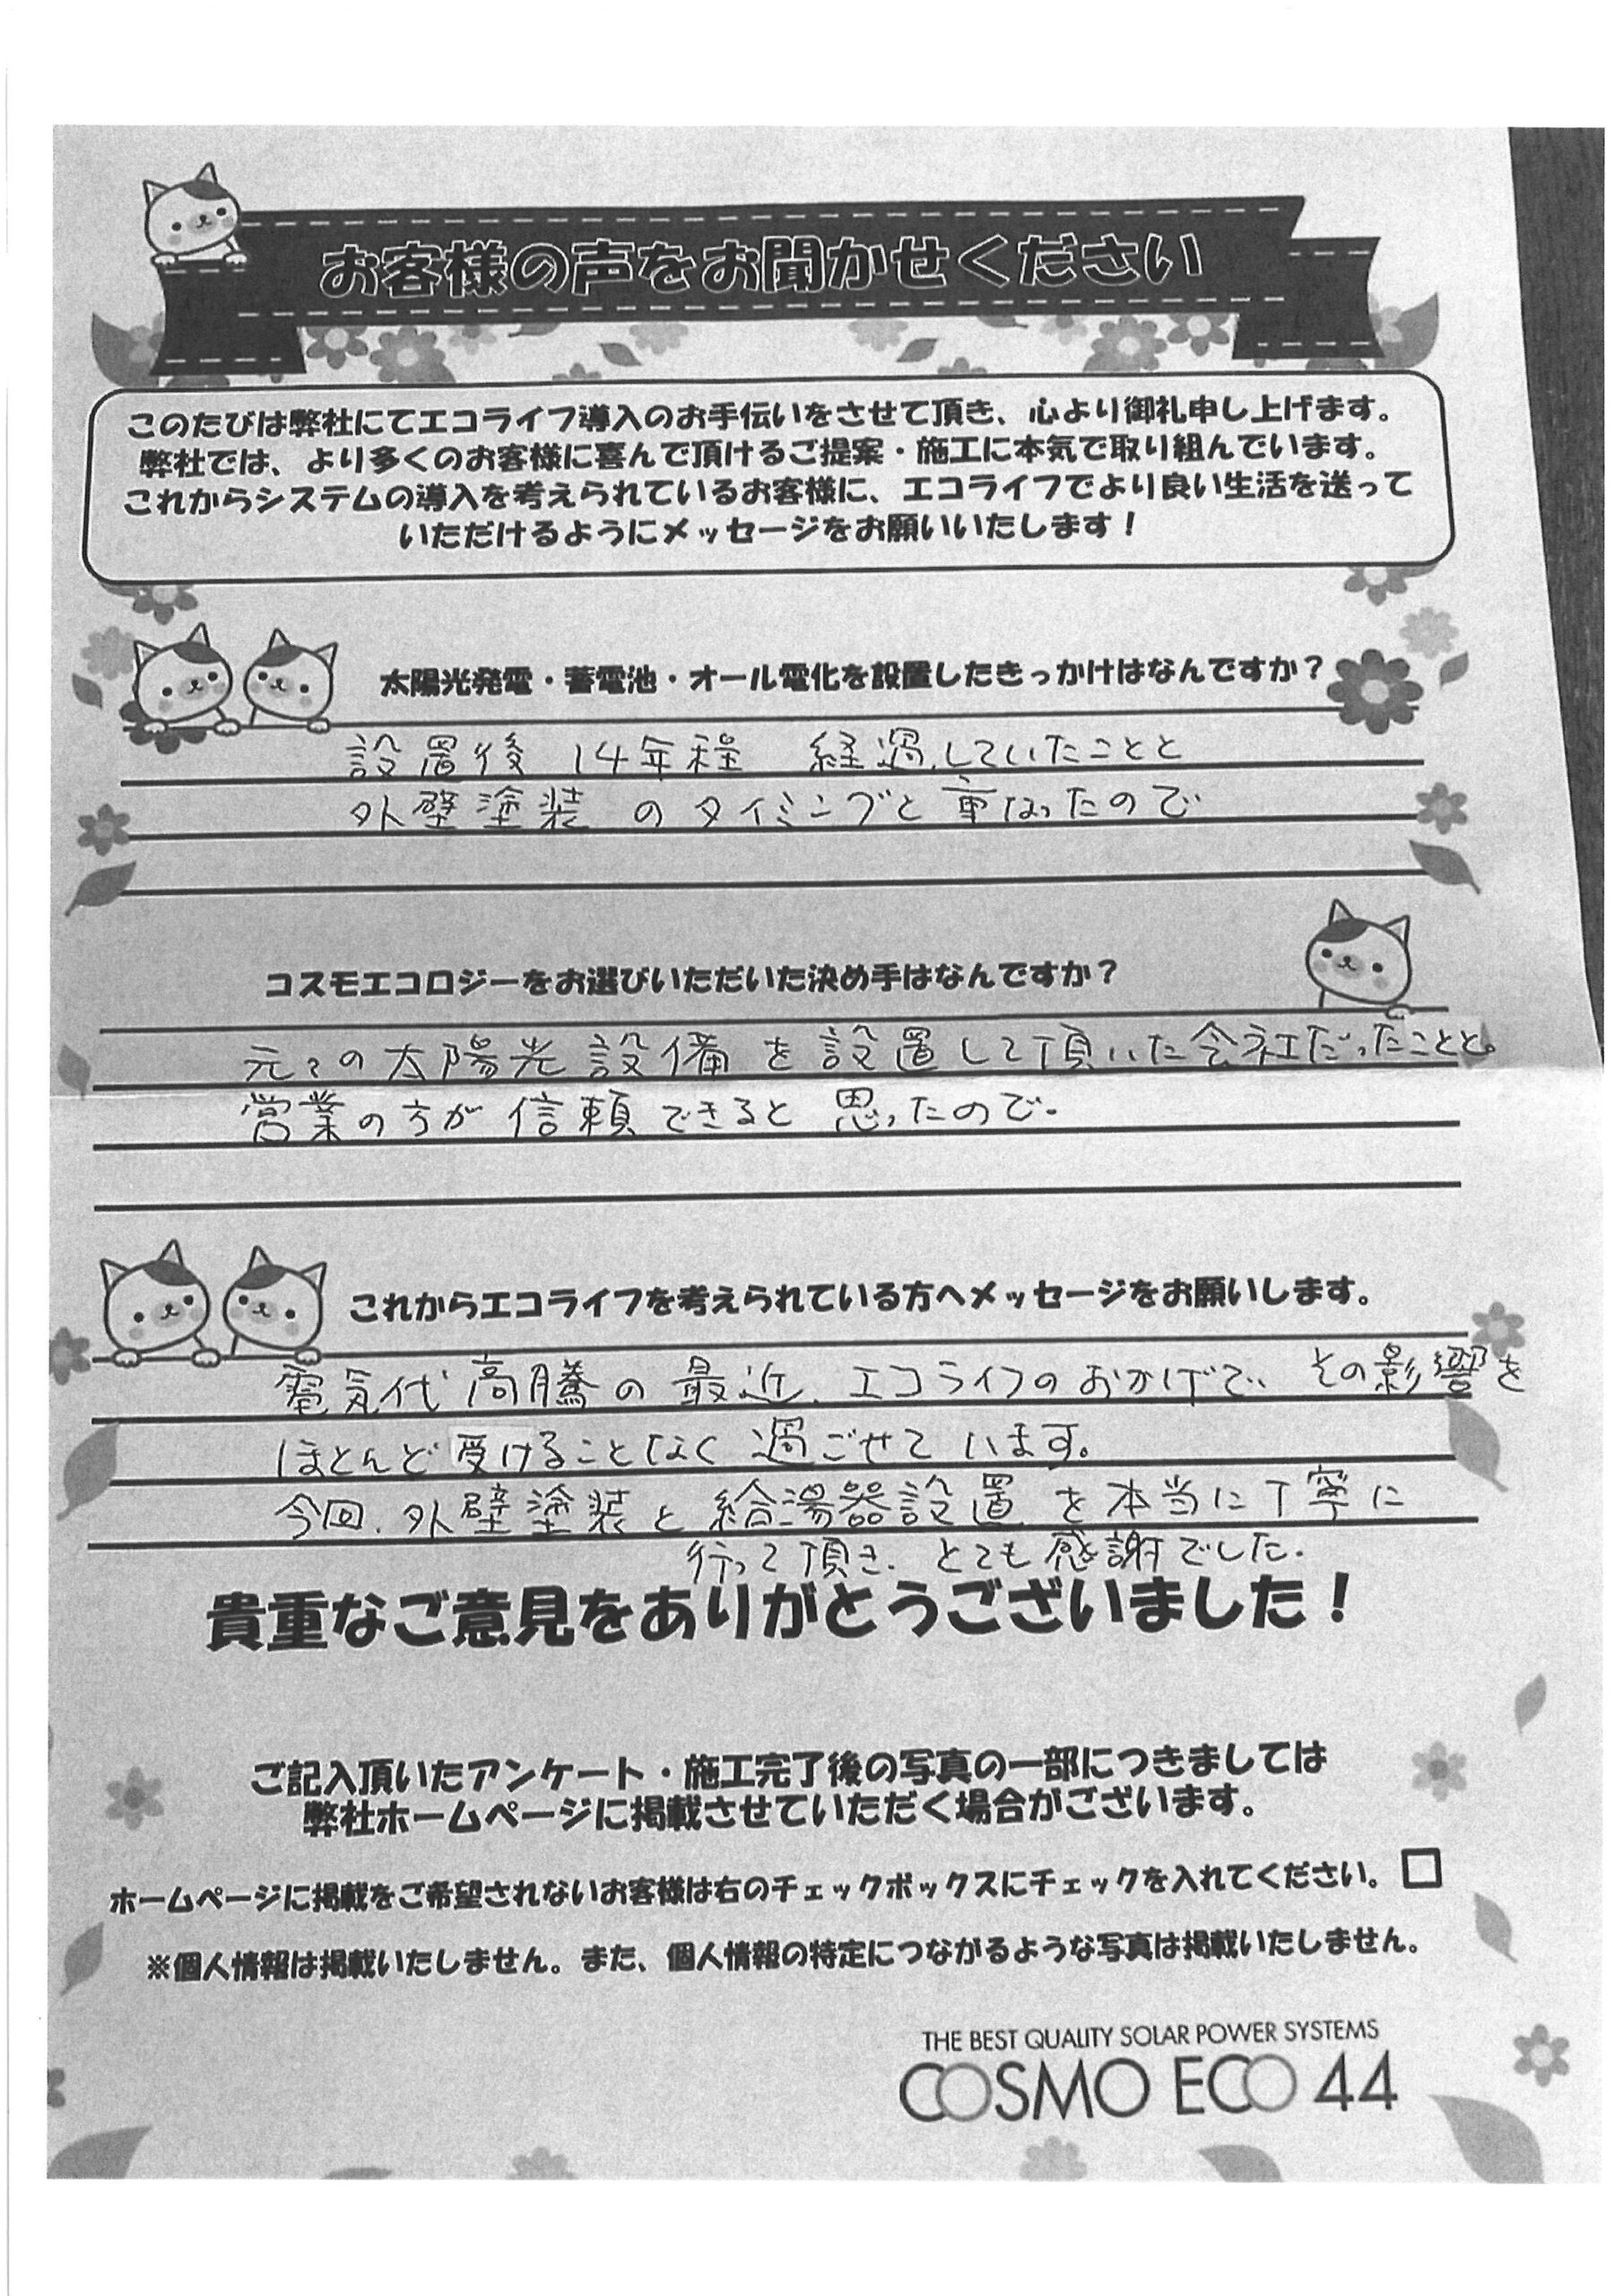 お客様の声をお聞かせください
このたびは弊社にてエコライフ導入のお手伝いをさせて頂き、心より御礼申し上げます。
弊社では、より多くのお客様に喜んで頂けるご提案・施工に本気で取り組んでいます。
これからシステムの導入を考えられているお客様に、エコライフでより良い生活を送って
いただけるようにメッセージをお願いいたします！
太陽光発電・蓄電池・オール電化を設置したきっかけはなんですか？
設置後 14年程 経過していたことと
外壁塗装 のタイミングと重なったので
コスモエコロジーをお選びいただいた決め手はなんですか？
元々の太陽光設備を設置して頂いた会社だったことと。
営業の方が信頼できると思ったので。
これからエコライフを考えられている方へメッセージをお願いします。
電気代高騰の最近、エコライフのおかげで、その影響を
ほとんど受けることなく過ごせています。
今回、外壁塗装と給湯器設置を本当に丁寧に
行って頂き、とても感謝でした。
貴重なご意見をありがとうございました！
ご記入頂いたアンケート・施工完了後の写真の一部につきましては
弊社ホームページに掲載させていただく場合がございます。
ホームページに掲載をご希望されないお客様は右のチェックボックスにチェックを入れてください。
※個人情報は掲載いたしません。また、個人情報の特定につながるような写真は掲載いたしません。
THE BEST QUALITY SOLAR POWER SYSTEMS
COSMO ECO 44